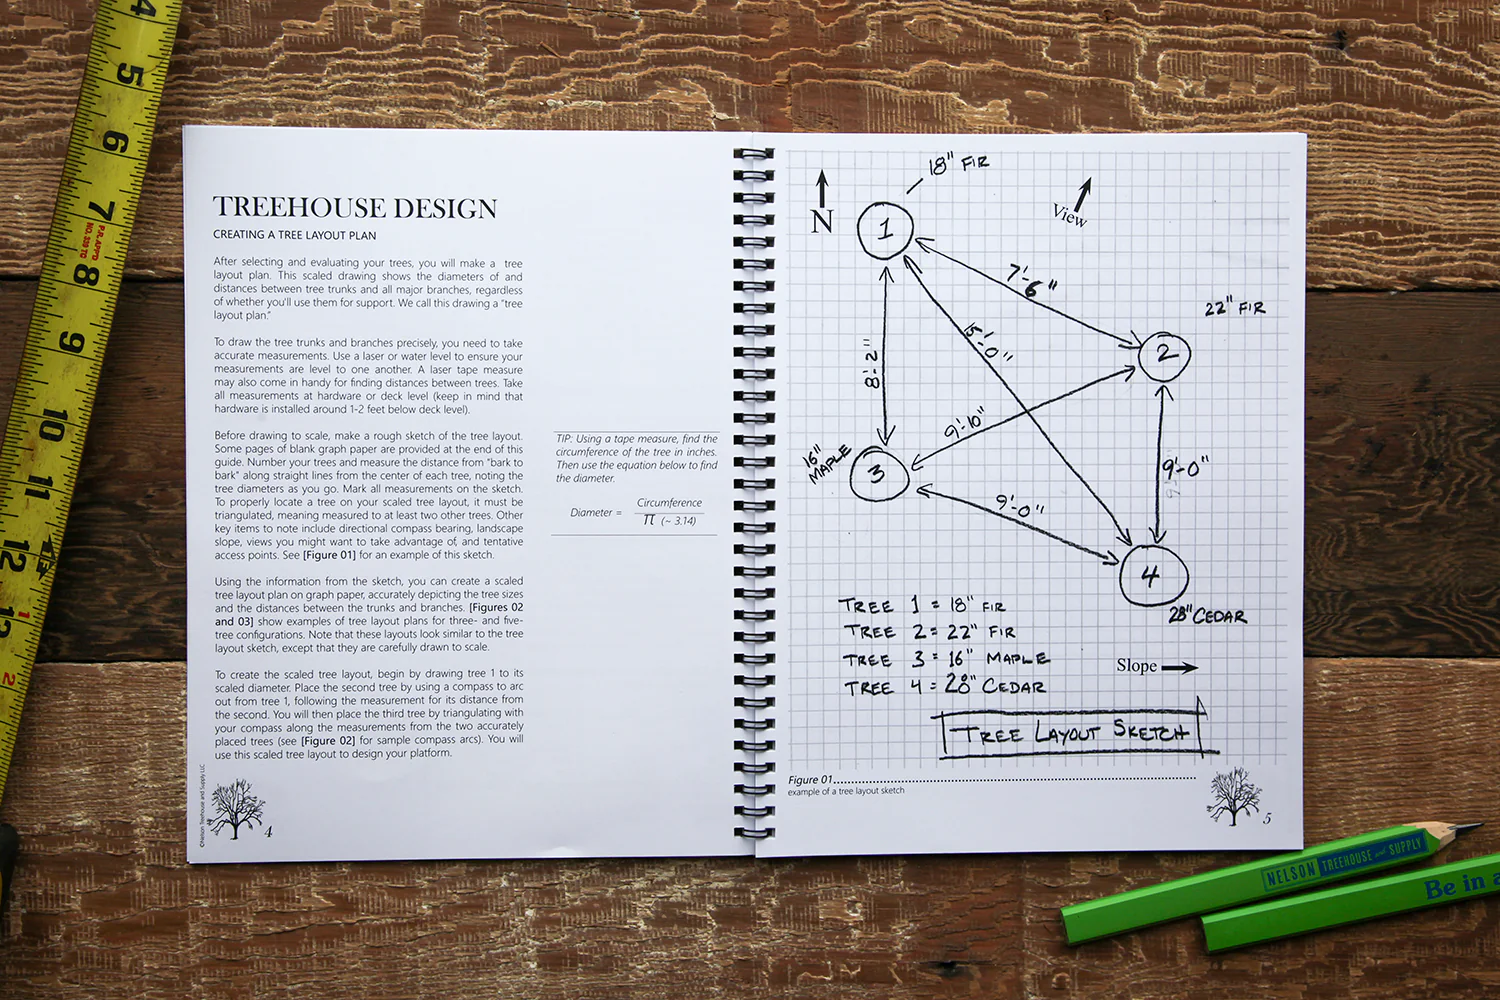 TREEHOUSE DESIGN
CREATING A TREE LAYOUT PLAN
After selecting and evaluating your trees, you will make a tree
layout plan. This scaled drawing shows the diameters of and
distances between tree trunks and all major branches, regardless
of whether you'll use them for support. We call this drawing a "tree
layout plan."
To draw the tree trunks and branches precisely, you need to take
accurate measurements. Use a laser or water level to ensure your
measurements are level to one another. A laser tape measure
may also come in handy for finding distances between trees. Take
all measurements at hardware or deck level (keep in mind that
hardware is installed around 1-2 feet below deck level).
Before drawing to scale, make a rough sketch of the tree layout.
Some pages of blank graph paper are provided at the end of this
guide. Number your trees and measure the distance from "bark to
bark" along straight lines from the center of each tree, noting the
tree diameters as you go. Mark all measurements on the sketch.
To properly locate a tree on your scaled tree layout, it must be
triangulated, meaning measured to at least two other trees. Other
key items to note include directional compass bearing, landscape
slope, views you might want to take advantage of, and tentative
access points. See [Figure 01] for an example of this sketch.
Using the information from the sketch, you can create a scaled
tree layout plan on graph paper, accurately depicting the tree sizes
and the distances between the trunks and branches. [Figures 02
and 03] show examples of tree layout plans for three- and five-
tree configurations. Note that these layouts look similar to the tree
layout sketch, except that they are carefully drawn to scale.
To create the scaled tree layout, begin by drawing tree 1 to its
scaled diameter. Place the second tree by using a compass to arc
out from tree 1, following the measurement for its distance from
the second. You will then place the third tree by triangulating with
your compass along the measurements from the two accurately
placed trees (see [Figure 02] for sample compass arcs). You will
use this scaled tree layout to design your platform.
TIP: Using a tape measure, find the
circumference of the tree in inches.
Then use the equation below to find
the diameter.
Diameter = Circumference
π (~ 3.14)
©Nelson Treehouse and Supply LLC
4
18" FIR
N
View
1
7'-6"
22" FIR
2
15'-0"
8'-2"
9'-10"
16"
MAPLE
3
9'-0"
9'-0"
4
28" CEDAR
TREE 1 = 18" FIR
TREE 2 = 22" FIR
TREE 3 = 16" MAPLE
TREE 4 = 28" CEDAR
Slope
TREE LAYOUT SKETCH
Figure 01
example of a tree layout sketch
5
NELSON TREEHOUSE and SUPPLY
Be in a
4
5
6
7
8
9
10
11
12